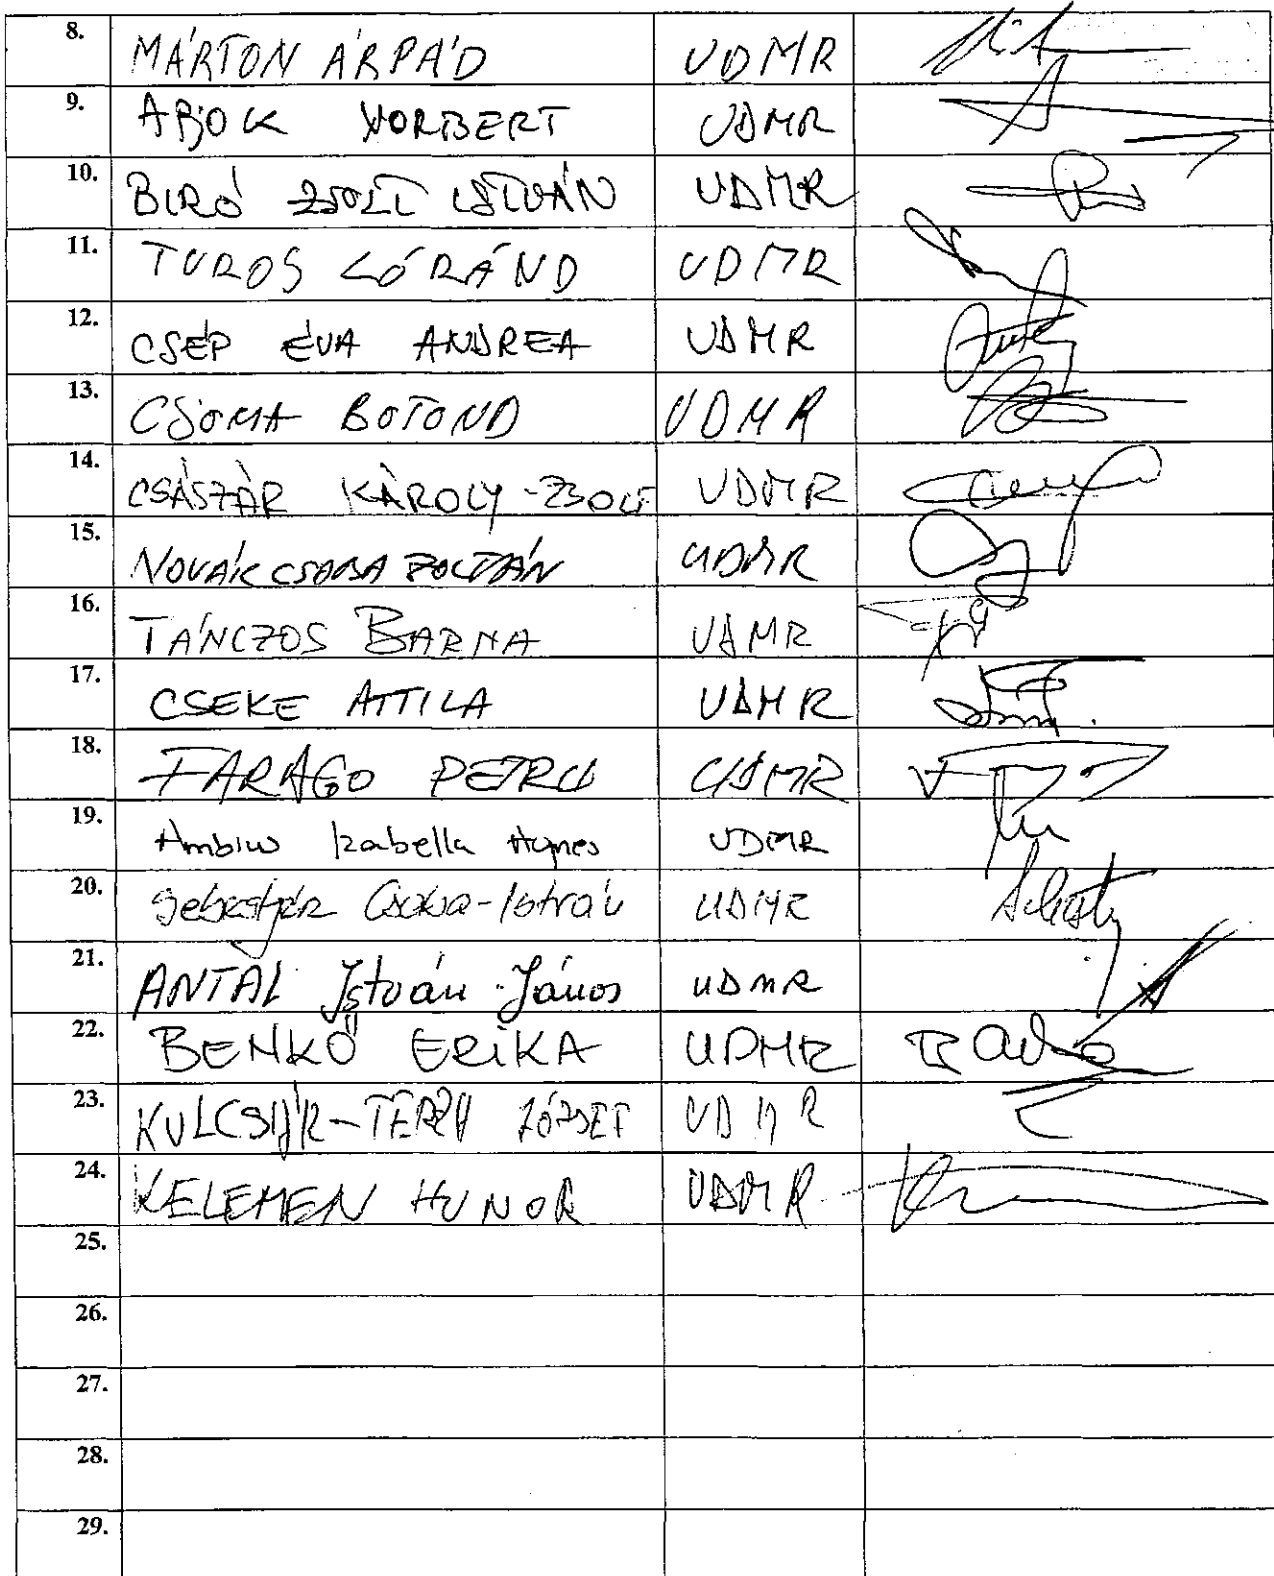 8. MÁRTON ÁRPÁD UDMR
9. APJOK NORBERT UDMR
10. BIRÓ ZSOLT ISTVÁN UDMR
11. TUROS LÓRÁND UDMR
12. CSÉP ÉVA ANDREA UDMR
13. CSOMA BOTOND UDMR
14. CSÁSZÁR KÁROLY-ZSOLT UDMR
15. NOVÁK CSABA ZOLTÁN UDMR
16. TÁNCZOS BARNA UDMR
17. CSEKE ATTILA UDMR
18. FARAGO PETRU UDMR
19. Ambrus Izabella Agnes UDMR
20. Sebestyén Csaba-István UDMR
21. ANTAL István-János UDMR
22. BENKŐ ERIKA UDMR
23. KULCSÁR-TERZA JÓZSEF UDMR
24. KELEMEN HUNOR UDMR
25.
26.
27.
28.
29.